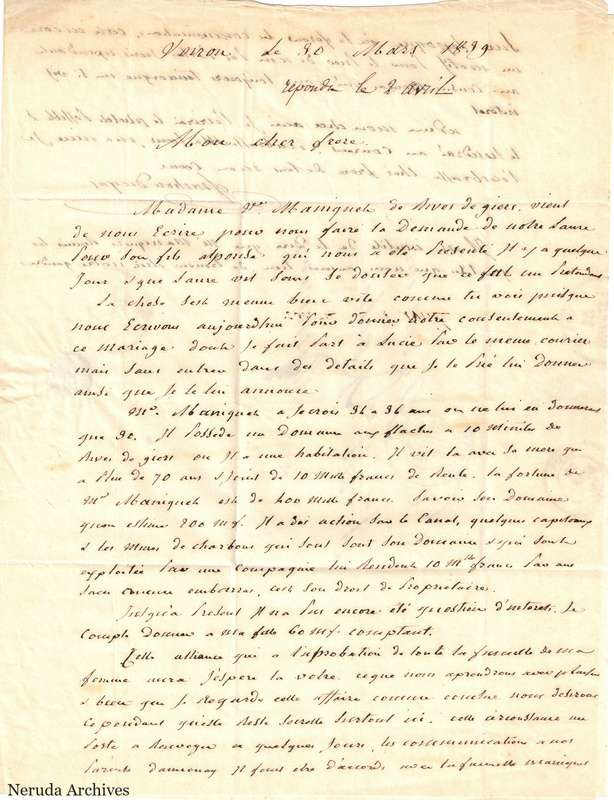 Voiron le 30 Mars 1839
repondu le 2 avril
Mon cher frere
Madame Vve Maniquet de Rives de giers vient
de nous Ecrire pour nous faire la Demande de notre Laure
pour son fils alponse qui nous a été Présenté Il y a quelque
Jour & que Laure vit sans se douter que ce fut un Pretendant
La chose s'est menne bien vite comme tu vois puisque
nous Ecrivons aujourdhui pour donner notre consentement a
ce mariage dont Je fait Part a Lucie Par le meme courier
mais sans entrer dans des details que Je te Prie lui donner
ainsi que Je le lui annonce.
Mr. Maniquet a Je crois 34 a 36 ans on ne lui en donneroit
que 30. Il Possede un Domaine aux flaches a 10 Minutes de
Rives de giers ou Il a une habitation. Il vit la avec sa mere qui
a Plus de 70 ans & Jouit de 10 Mille francs de Rente. la fortune de
Mr Maniquet est de 400 Mille francs. Savoir son Domaine
quon estime 200 mf. Il a des action sur le Canal, quelques capitaux
& les Mines de charbons qui sont sout son Domaine & qui sont
exploitée Par une Compagnie lui Rendent 10 Mlle francs Par ans
sans aucun embarras, cest son droit de Proprietaire.
Jusqu'a Present Il n'a Pas encore été question d'interets. Je
compte donner a ma fille 60 mf. comptant.
Cette alliance qui a l'aprobation de toute la famille de ma
femme aura J'éspere la votre. ceque nous aprendrons avec plaisir
& bien que Je Regarde cette affaire comme conclue nous desirons
cependant quelle Reste secrette surtout ici. cette circonstance me
Porte a Renvoyer a quelques Jours, les communications a nos
Parents dannonay Il faut etre d'accord avec la famille Maniquet
Neruda Archives